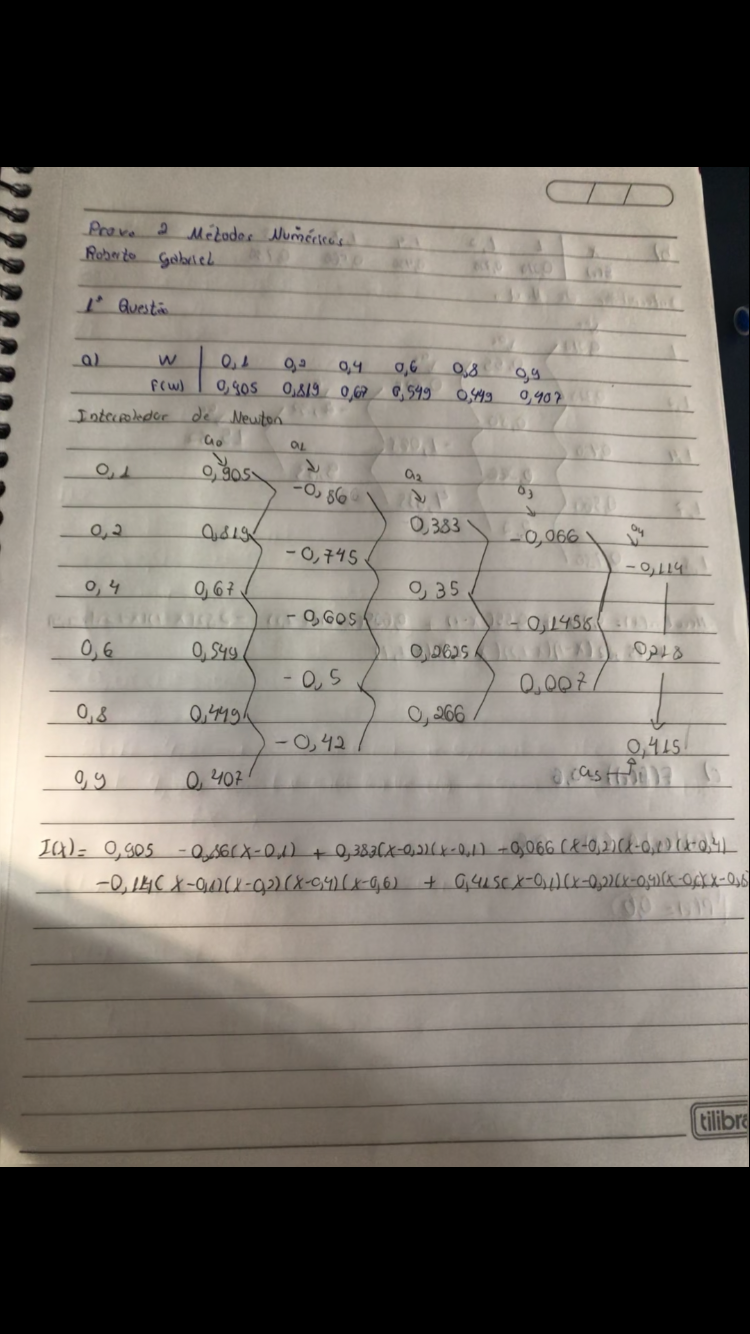 Prova 2 Métodos Numéricos
Roberto Gabriel
1ª Questão
a) W 0,1 0,2 0,4 0,6 0,8 0,9
F(W) 0,905 0,819 0,67 0,549 0,449 0,407
Interpolador de Newton
a0 a1 a2 a3 a4
0,1 0,905
-0,86
0,2 0,819 0,383 -0,066
-0,745 -0,114
0,4 0,67 0,35
-0,605 -0,1458
0,6 0,549 0,2625 0,218
-0,5 0,007
0,8 0,449 0,266
-0,42 0,415
0,9 0,407 a5
I(x)= 0,905 -0,86(x-0,1) + 0,383(x-0,2)(x-0,1) -0,066(x-0,2)(x-0,1)(x-0,4)
-0,114(x-0,1)(x-0,2)(x-0,4)(x-0,6) + 0,415(x-0,1)(x-0,2)(x-0,4)(x-0,6)(x-0,8
tilibra